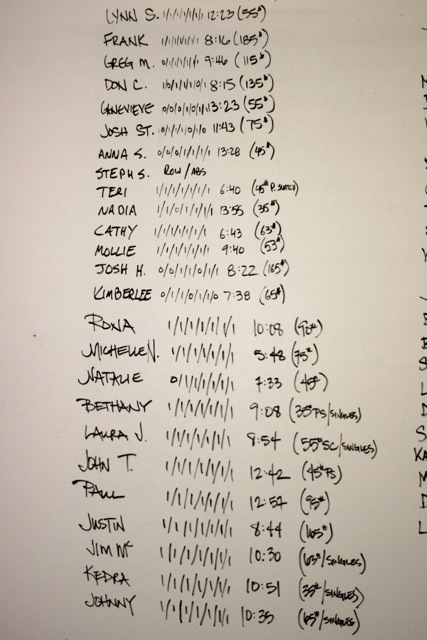 LYNN S. 1/1/1/1/1/1/1 12:23 (55#)
FRANK 1/1/1/1/1/1/1 8:16 (185#)
GREG M. 0/1/1/1/1/1/1 9:46 (115#)
DON C. 1/0/1/1/1/0/1 8:15 (135#)
GENEVIEVE 0/0/0/1/0/1/1 13:23 (55#)
JOSH ST. 0/1/1/1/0/1/0 11:43 (75#)
ANNA S. 0/0/0/1/1/1/1 13:28 (45#)
STEPH S. ROW/ABS
TERI 1/1/1/1/1/1/1 6:40 (45# P. SNATCH)
NADIA 1/1/0/1/1/1/1 13:55 (35#)
CATHY 1/1/1/1/1/1/1 6:43 (63#)
MOLLIE 1/1/1/1/1/1/1 9:40 (53#)
JOSH H. 0/0/1/1/0/1/1 8:22 (165#)
KIMBERLEE 0/1/1/0/1/1/0 7:38 (65#)
RONA 1/1/1/1/1/1/1 10:08
MICHELLE V. 1/1/1/1/1/1/1 5:48 (75#)
NATALIE 0/1/1/1/1/1/1 7:33 (45#)
BETHANY 1/1/1/1/1/1/1 9:08 (35#PS/SINGLES)
LAURA J. 1/1/1/1/1/1/1 8:54 (55#SC/SINGLES)
JOHN T. 1/1/1/1/1/1/1 12:42 (45#PS)
PAUL 1/1/1/1/1/1/1 12:57 (95#)
JUSTIN 1/1/1/1/1/1/1 8:44 (165#)
JIM Mc 1/1/1/1/1/1/1 10:30 (63#/SINGLES)
KEDRA 1/1/1/1/1/1/1 10:51 (35#/SINGLES)
JOHNNY 1/1/1/1/1/1/1 10:35 (65#/SINGLES)